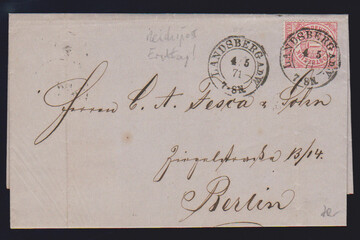 Reichspost
Ersttag!
LANDSBERG A.D.W.
4 5
71
7-8N.
LANDSBERG A.D.W.
4 5
7-8N.
Herren C. A. Fesca & Sohn
Ziegelstraße 13/14.
Berlin